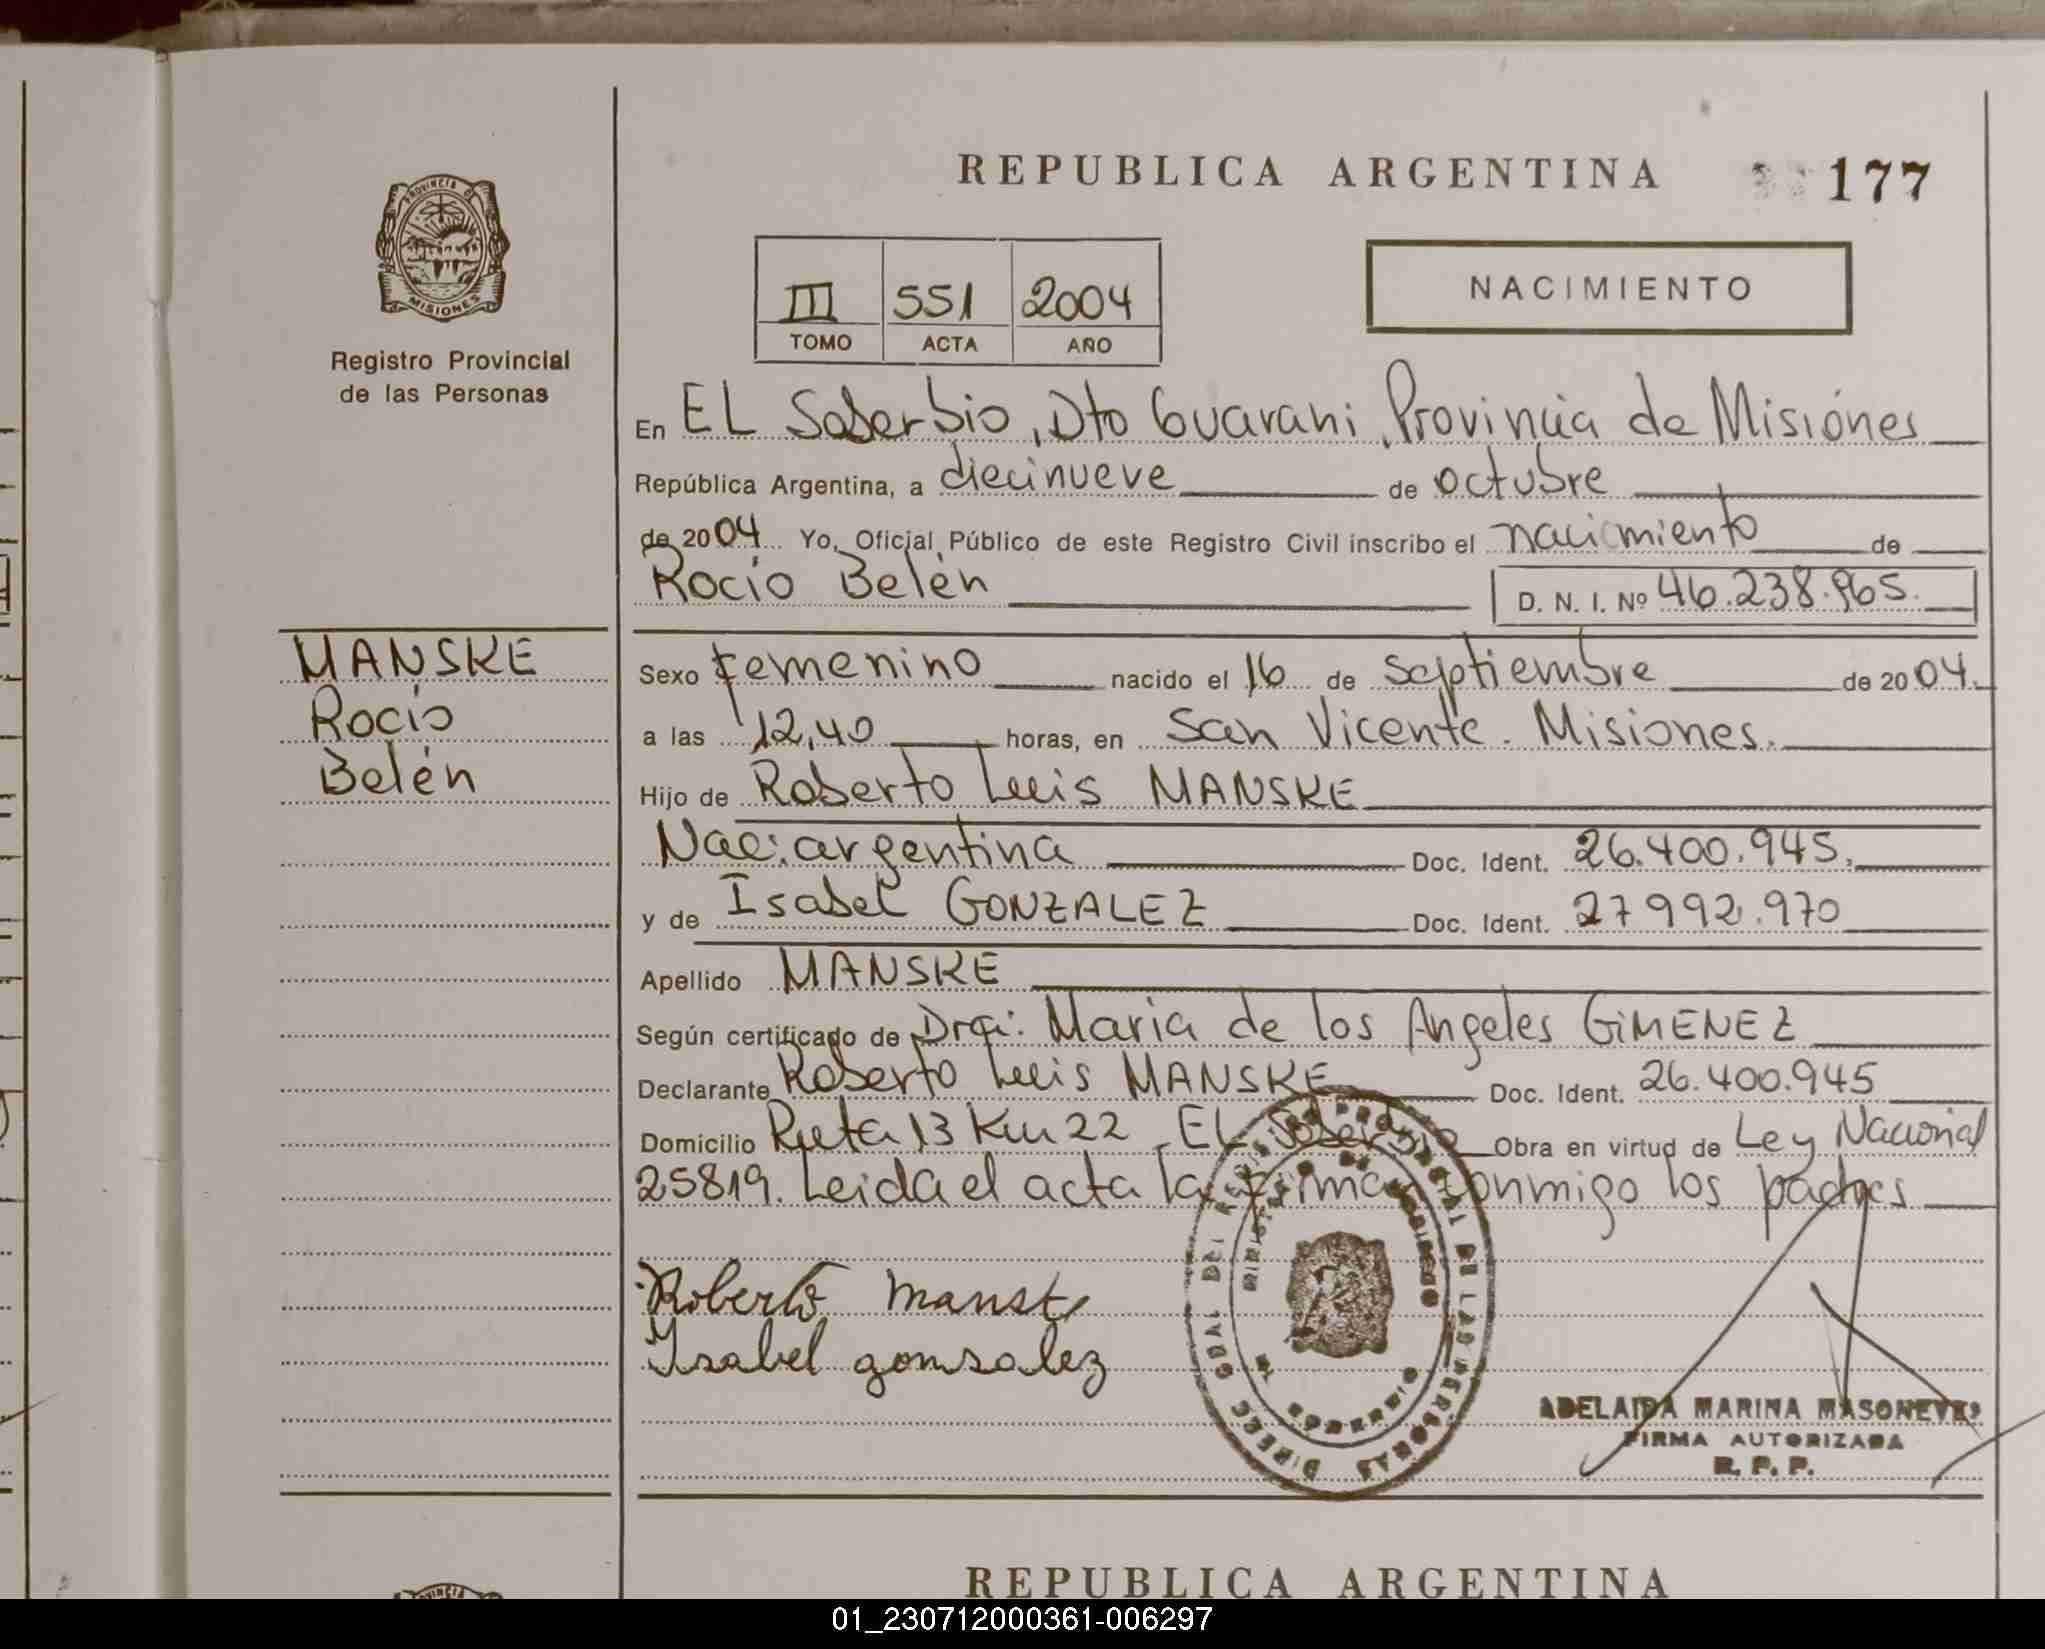 REPUBLICA ARGENTINA
177
PROVINCIA DE
MISIONES
Registro Provincial
de las Personas
III 551 2004
TOMO ACTA AÑO
NACIMIENTO
En EL Soberbio, Dto Guarani, Provincia de Misiones
República Argentina, a diecinueve de octubre
de 2004 Yo, Oficial Público de este Registro Civil inscribo el nacimiento de
Rocio Belén D. N. I. Nº 46.238.965.
MANSKE
Rocio
Belén
Sexo femenino nacido el 16 de septiembre de 2004.
a las 12,40 horas, en San Vicente. Misiones.
Hijo de Roberto Luis MANSKE
Nac: argentina Doc. Ident. 26.400.945.
y de Isabel GONZALEZ Doc. Ident. 27992.970
Apellido MANSKE
Según certificado de Dra: Maria de los Angeles GiMENEZ
Declarante Roberto Luis MANSKE Doc. Ident. 26.400.945
Domicilio Ruta 13 Km 22 EL Soberbio Obra en virtud de Ley Nacional
25819. Leida el acta la firman conmigo los padres
Roberto Mansk
Isabel gonsalez
ADELAIDA MARINA
FIRMA AUTORIZADA
R. P. P.
REPUBLICA ARGENTINA
01_230712000361-006297